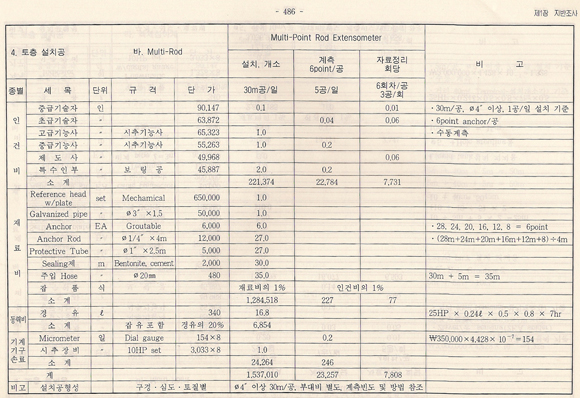 - 486 -
제1장 지반조사
4. 토층 설치공
바. Multi-Rod
Multi-Point Rod Extensometer
비 고
설치, 개소
계측 6point/공
자료정리 회당
종별 세 목 단위 규 격 단 가 30m공/일 5공/일 6회차/공 3공/회
인건비
중급기술자 인 90,147 0.1 0.01 ·30m/공, ø4″ 이상, 1공/일 설치 기준
초급기술자 〃 63,872 0.04 0.06 ·6point anchor/공
고급기능사 〃 시추기능사 65,323 1.0 ·수동계측
중급기능사 〃 시추기능사 55,263 1.0 0.2
제 도 사 〃 49,968 0.06
특수인부 〃 보 링 공 45,887 2.0 0.2
소 계 221,374 22,784 7,731
재료비
Reference head w/plate set Mechanical 650,000 1.0
Galvanized pipe 〃 ø3″ ×1.5 50,000 1.0
Anchor EA Groutable 6,000 6.0 ·28, 24, 20, 16, 12, 8 = 6point
Anchor Rod 〃 ø1/4″ ×4m 12,000 27.0 ·(28m+24m+20m+16m+12m+8)÷4m
Protective Tube 〃 ø1″ ×2.5m 5,000 27.0
Sealing제 m Bentonite, cement 2,000 30.0
주입 Hose 〃 ø20㎜ 480 35.0 30m + 5m = 35m
잡 품 식 재료비의 1% 인건비의 1%
소 계 1,284,518 227 77
동력비
경 유 ℓ 340 16.8 25HP × 0.24ℓ × 0.5 × 0.8 × 7hr
소 계 잡유포함 경유의 20% 6,854
기계기구손료
Micrometer 일 Dial gauge 154×8 0.2 ₩350,000×4,428×10⁻⁷=154
시추장비 〃 10HP set 3,033×8 1.0
소 계 24,264 246
계 1,537,010 23,257 7,808
비고 설치공형성 구경·심도·토질별 ø4″ 이상 30m/공, 부대비 별도, 계측빈도 및 방법 참조